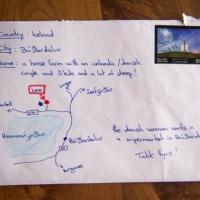 Country: Iceland
City: Búðardalur
Name: a horse farm with an icelandic/danish
couple and 3 kids and a lot of sheep!
here
Ísafjörður
Hvammsfjörður
Búðardalur
Borgarnes
the danish woman works in
a supermarket in Búðardalur
Takk fyrir!